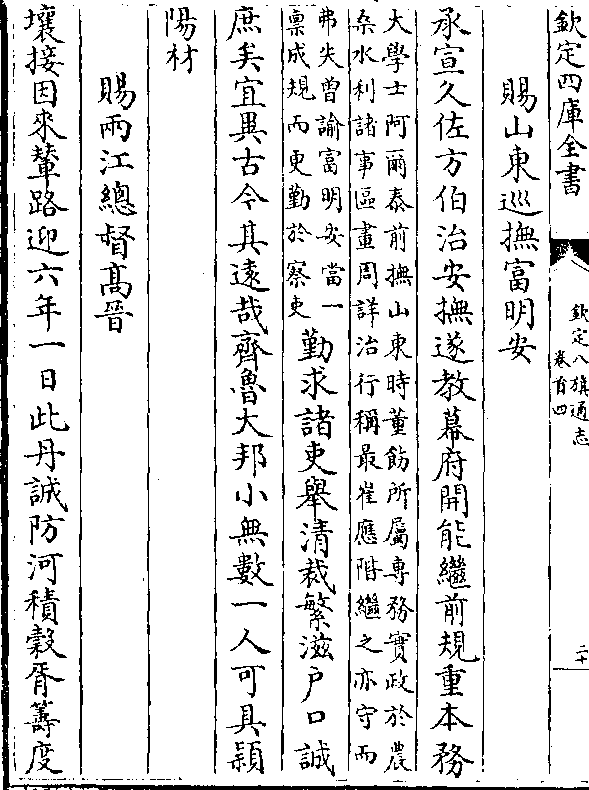 欽定四庫全書
欽定八旗通志
卷首四
二十
賜山東巡撫富明安
承宣久佐方伯治安撫遂教幕府開能繼前規重本務
大學士阿爾泰前撫山東時董飭所屬專務實政於農
桑水利諸事區畫周詳治行稱最崔應階繼之亦守而
弗失曾諭富明安當一
稟成規而更勤於察吏
勤求諸吏舉清裁繁滋戶口誠
庶矣宜異古今其遠哉齊魯大邦小無數一人可具頴
陽材
賜兩江總督髙晉
壤接因來輦路迎六年一日此丹誠防河積榖胥籌度